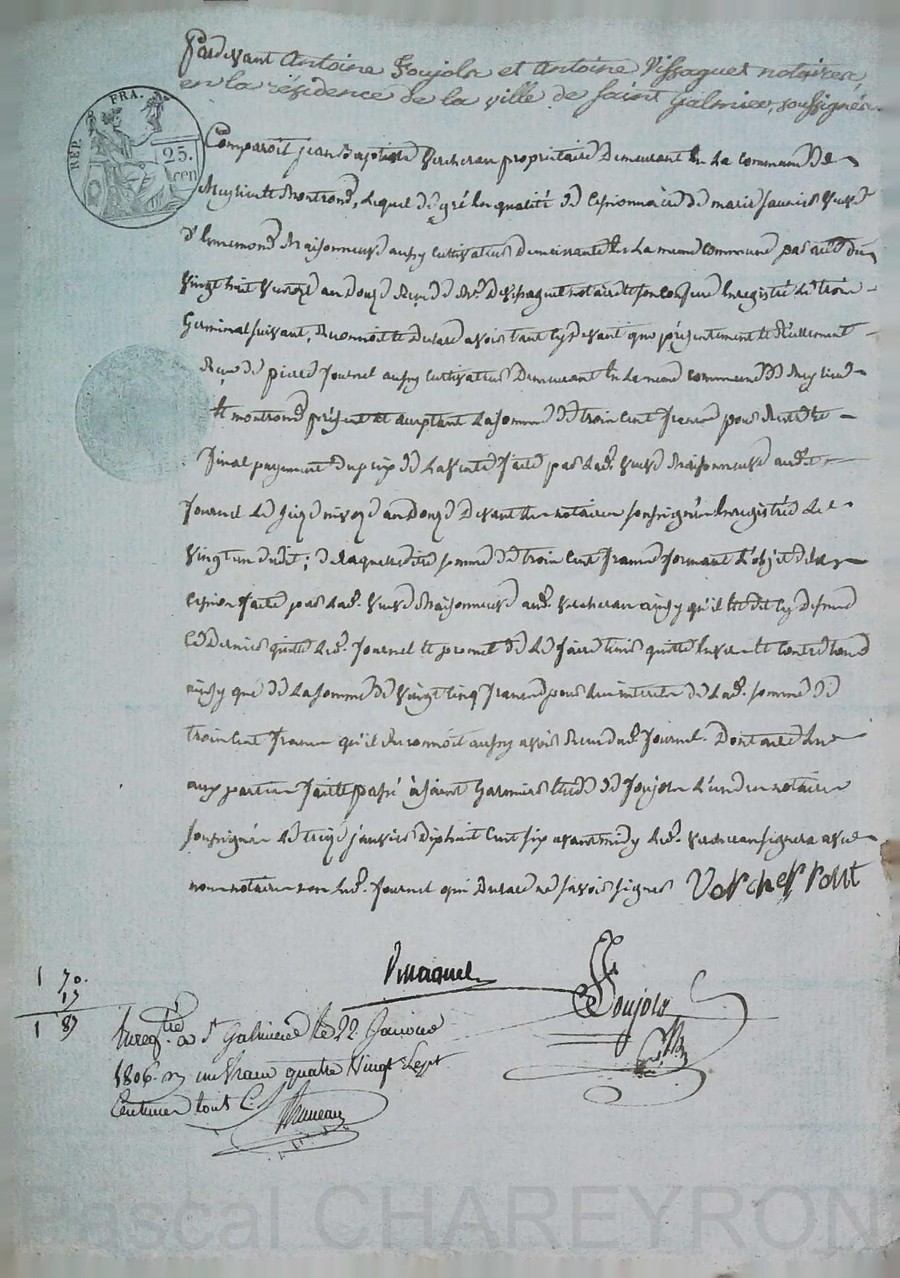 Pardevant Antoine Soujols et Antoine Vissaguet notaires
en la résidence de la ville de Saint Galmier, soussignés.
REP. FRA.
25. cen
Comparoit jean Baptiste Vercheran propriétaire Demeurant En La commune De
Meylieu et Montrond, Lequel De gré En qualité De Cessionnaire De marie Veuve
aussy cultivateur Demeurante En La meme commune par acte du
Vingt huit Ventose an Douze Recu De Me. De Vissaguet notaire et son confrere Enregistré Le trois
Germinal suivant, Reconnoit et Declare avoir tant cy devant que présentement et Réellement
Reçu De pierre Journel aussy cultivateur Demeurant En La meme commune De Meylieu
Et montrond présent et acceptant La somme De trois cent francs pour Reste Et
final payement Du prix De La Vente faite par Lad. Veuve audit
Journel Le seize nivose an Douze Devant Les notaires soussignés Enregistré Le
Vingt un dudit ; De laquelle dite somme De trois cent francs formant L'objet De La
Cession faite par Lad. Veuve aud. Vercheran ainsy qu'il Est dit Cy Dessus
Ce Dernier quitte Led. Journel Et promet De Le faire tenir quitte Envers Et Contre tous
ainsy que De La somme De Vingt Cinq francs pour Les interets De Lad. somme De
trois cent francs qu'il Reconnoit aussy avoir Recu dud. Journel. Dont acte Lu
aux parties fait et passé à Saint Galmier Etude De Soujols L'un des notaires
soussignés Le treize janvier Dixhuit Cent six avant midy Led. Vercheran signera avec
nous notaires non Led. Journel qui Declare ne savoir signer Vercherant
Vissaguet
Soujols
1 70.
17
1 87
Enregtré. à St Galmier le 22 Janvier
1806. un franc quatre Vingt Sept
Centimes tout C.
Pascal CHAREYRON